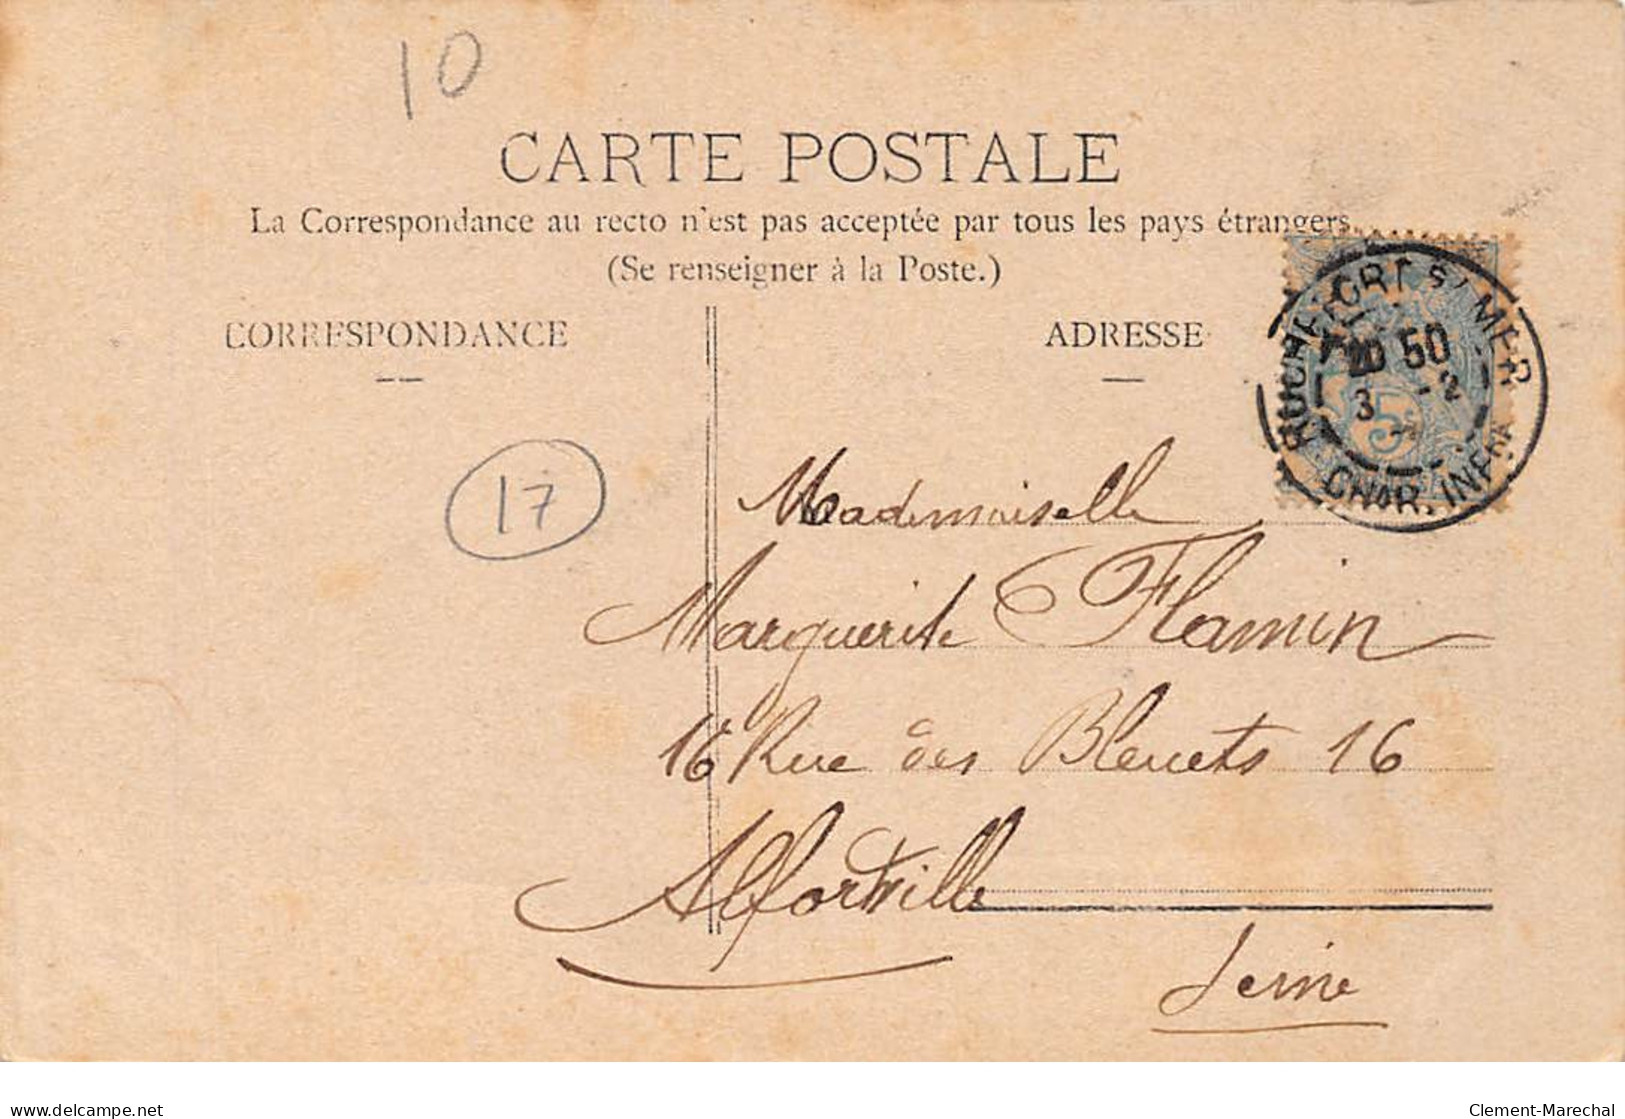 10
CARTE POSTALE
La Correspondance au recto n'est pas acceptée par tous les pays étrangers
(Se renseigner à la Poste.)
CORRESPONDANCE
ADRESSE
ROCHEFORT S/ MER
50
3 -2
5
CHAR. INFRE
17
Mademoiselle
Marguerite Flamin
16 Rue des Bleuets 16
Alfortville
Seine
delcampe.net
Clement-Marechal